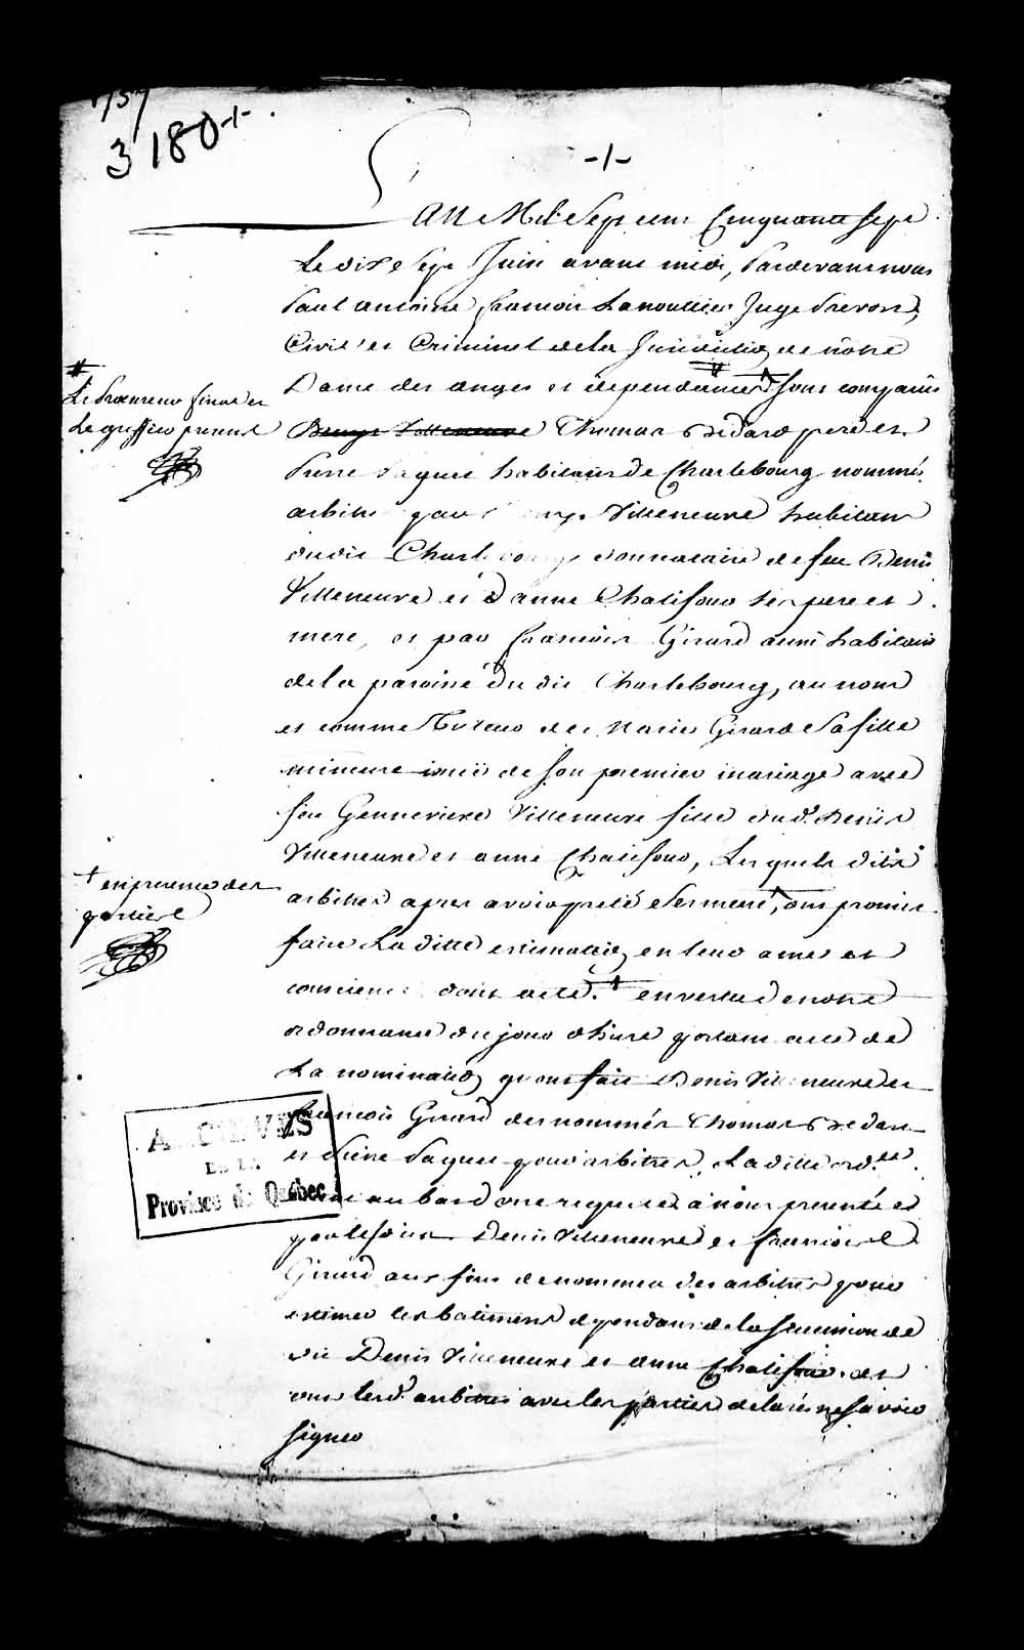 1757
3180+
-1-
L'an Mil Sept cens Cinquante sept
Le dix e sept Juin avant midi, Pardevant nous
Paul antoine francois Lanoullier Juge Prevost,
Civil et Criminel de la Juridictio de nôtre
Dame des anges et dependances sont comparus
#
Le Procureur fiscal et
Le greffier present
Thomas Bedard pere et
Pierre Paquet habitans de Charlebourg nommés
arbitre par Villeneuve habitant
dudit Charlebourg donnataire de feu Denis
Villeneuve et d'anne Chalifour ses pere et
mere, et par francois Girard aussi habitant
de la paroisse du dit Charlebourg, au nom
et comme Tuteur de Marie Girard Sa fille
mineure issüe de son premier mariage avec
feu Genneviere Villeneuve fille dud. Denis
Villeneuve et anne Chalifour, Lesquels dits
+ en presence des
parties
arbitres apres avoir preté Serment, ont promis
faire La ditte estimatio en leur ames et
concience dont acte. + en vertu de notre
ordonnance du jour d'hier portant acte de
La nominatio qu'ont fait Denis Villeneuve et
francois Girard des nommés Thomas Bedard
et Pierre Paquet pour arbitres, La ditte ord.ce
au bas d'une requete à nous presentée
par lesdits Denis Villeneuve et francois
Girard aux fins de nommer des arbitres pour
estimer les batimens dependans de la Succession de
dit Denis Villeneuve et anne Chalifour et
ont lesd. arbitres avec les parties declaré ne savoir
signer
ARCHIVES
DE LA
Province de Québec